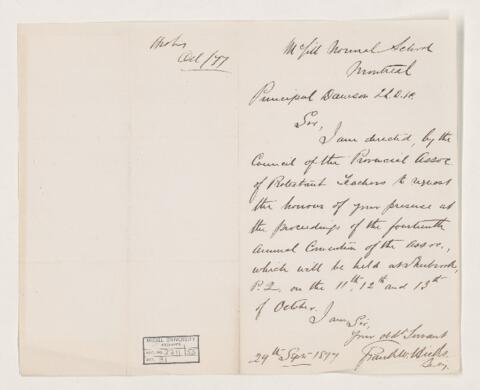 Oct/77
McGill Normal School
Montreal
Principal Dawson LL.D. &c.
Sir,
I am directed, by the
Council of the Provincial Assoc
of Protestant Teachers to request
the honour of your presence at
the proceedings of the fourteenth
Annual Convention of the Assoc.,
which will be held at Sherbrook,
P.Q. on the 11th, 12th and 13th
of October.
I am Sir,
Your obdt Servant
Frank W. Hicks.
Secy.
29th Sept 1877
MCGILL UNIVERSITY
ARCHIVES
ACC. NO.